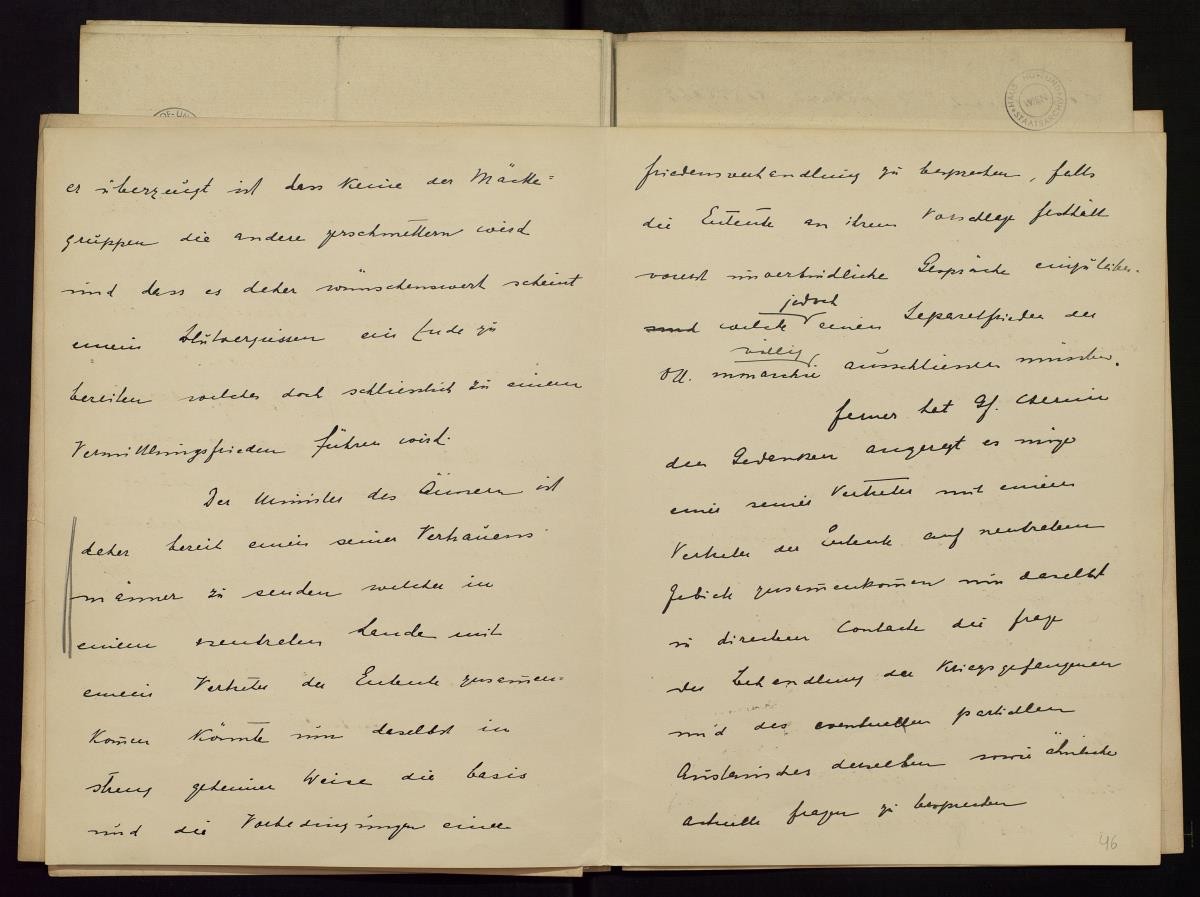 er überzeugt ist dass keine der Mächte=
gruppen die andere zerschmettern wird
und dass es daher wünschenswert scheint
einem Blutvergiessen ein Ende zu
bereiten welches doch schliesslich zu einem
Vermittlungsfrieden führen wird.
Der Minister des Äussern ist
daher bereit einen seiner Vertrauens
männer zu senden welcher in
einem neutralen Lande mit
einem Vertreter der Entente zusam̅en=
kom̅en könnte um daselbst in
streng geheimer Weise die Basis
und die Vorbedingungen einer
Friedensverhandlung zu besprechen, falls
die Entente an ihrem Vorschlage festhält
vorerst unverbindliche Gespräche einzuleiten.
jedoch
und welche einen Separatfrieden der
völlig
ö.u. monarchie ausschliessen müssten.
Ferner hat Gf. Czernin
den Gedanken angeregt es möge
einer seiner Vertreter mit einem
Vertreter der Entente auf neutralem
Gebiete zusam̅enkom̅en um daselbst
in directem Contacte die Frage
der Behandlung der Kriegsgefangenen
und des eventuellen partiellen
Austausches derselben sowie ähnliche
actuelle Fragen zu besprechen
46
HAUS- HOF- UND STAATSARCHIV
WIEN